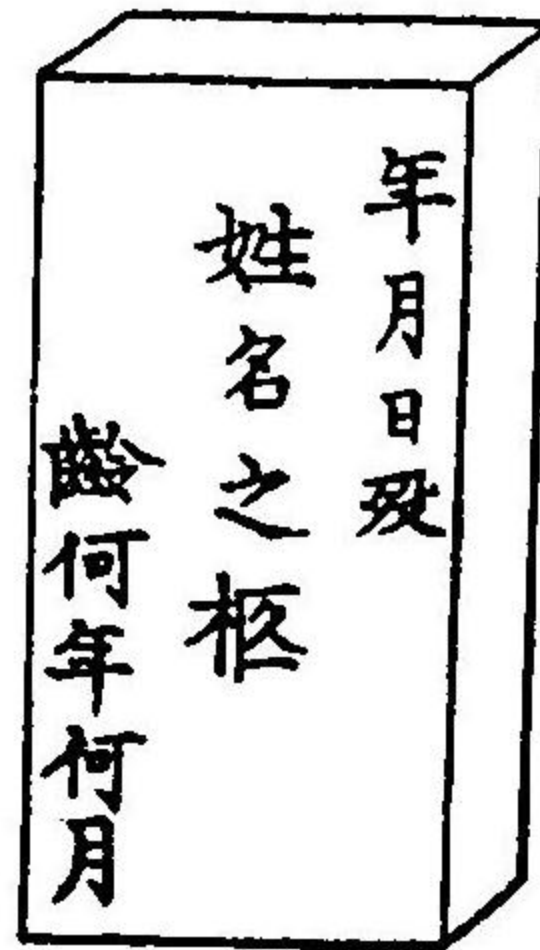 年月日歿
姓名之柩
齡何年何月